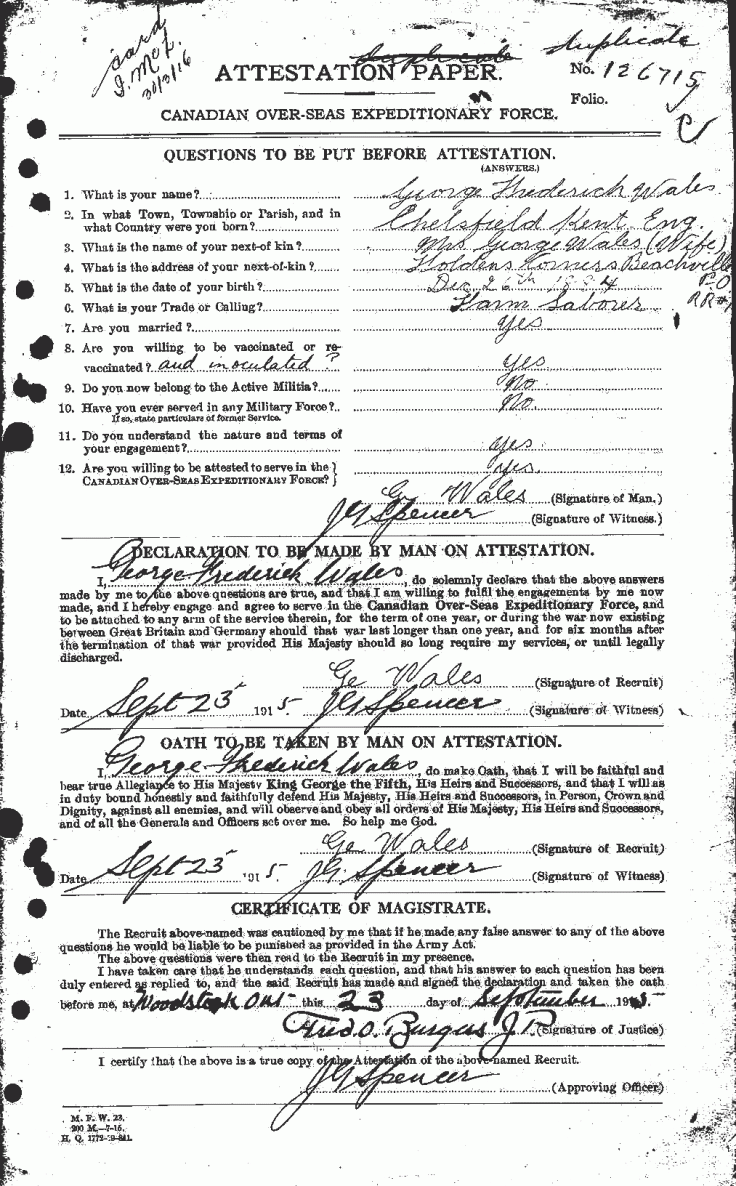 card
30/3/16
Duplicate
duplicate
ATTESTATION PAPER.
No. 126715
Folio.
CANADIAN OVER-SEAS EXPEDITIONARY FORCE.
QUESTIONS TO BE PUT BEFORE ATTESTATION.
(ANSWERS.)
1. What is your name? George Frederich Wales
2. In what Town, Township or Parish, and in
what Country were you born? Chelsfield Kent Eng.
3. What is the name of your next-of kin? Mrs George Wales (Wife)
4. What is the address of your next-of-kin? Holdens Corners Beachville
P.O
RR#1
5. What is the date of your birth? Dec 26th 1884
6. What is your Trade or Calling? Farm Laborer
7. Are you married? yes
8. Are you willing to be vaccinated or re-
vaccinated? and inoculated? yes
9. Do you now belong to the Active Militia? No
10. Have you ever served in any Military Force? No.
If so, state particulars of former Service.
11. Do you understand the nature and terms of
your engagement? yes
12. Are you willing to be attested to serve in the
CANADIAN OVER-SEAS EXPEDITIONARY FORCE? yes.
Ge Wales (Signature of Man.)
JG Spencer (Signature of Witness.)
DECLARATION TO BE MADE BY MAN ON ATTESTATION.
I, George Frederich Wales, do solemnly declare that the above answers
made by me to the above questions are true, and that I am willing to fulfil the engagements by me now
made, and I hereby engage and agree to serve in the Canadian Over-Seas Expeditionary Force, and
to be attached to any arm of the service therein, for the term of one year, or during the war now existing
between Great Britain and Germany should that war last longer than one year, and for six months after
the termination of that war provided His Majesty should so long require my services, or until legally
discharged.
Ge Wales (Signature of Recruit)
Date Sept 23 1915. JG Spencer (Signature of Witness)
OATH TO BE TAKEN BY MAN ON ATTESTATION.
I, George Frederich Wales, do make Oath, that I will be faithful and
bear true Allegiance to His Majesty King George the Fifth, His Heirs and Successors, and that I will as
in duty bound honestly and faithfully defend His Majesty, His Heirs and Successors, in Person, Crown and
Dignity, against all enemies, and will observe and obey all orders of His Majesty, His Heirs and Successors,
and of all the Generals and Officers set over me. So help me God.
Ge Wales (Signature of Recruit)
Date Sept 23 1915. JG Spencer (Signature of Witness)
CERTIFICATE OF MAGISTRATE.
The Recruit above-named was cautioned by me that if he made any false answer to any of the above
questions he would be liable to be punished as provided in the Army Act.
The above questions were then read to the Recruit in my presence.
I have taken care that he understands each question, and that his answer to each question has been
duly entered as replied to, and the said Recruit has made and signed the declaration and taken the oath
before me, at Woodstock Ont this 23 day of September 1915.
Fred. O. Burgess J.P. (Signature of Justice)
I certify that the above is a true copy of the Attestation of the above-named Recruit.
JG Spencer (Approving Officer)
M. F. W. 23.
200 M.-7-15.
H. Q. 1772-39-841.